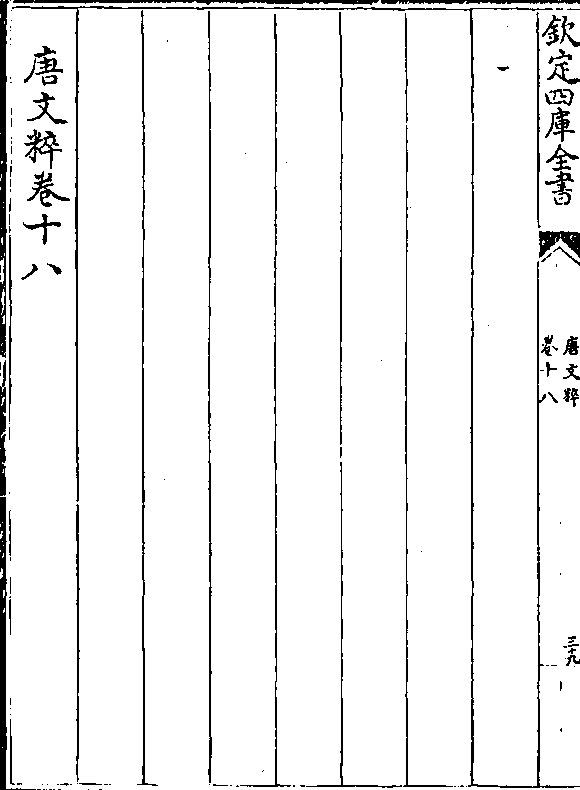 欽定四庫全書
唐文粹
卷十八
三十九
唐文粹卷十八